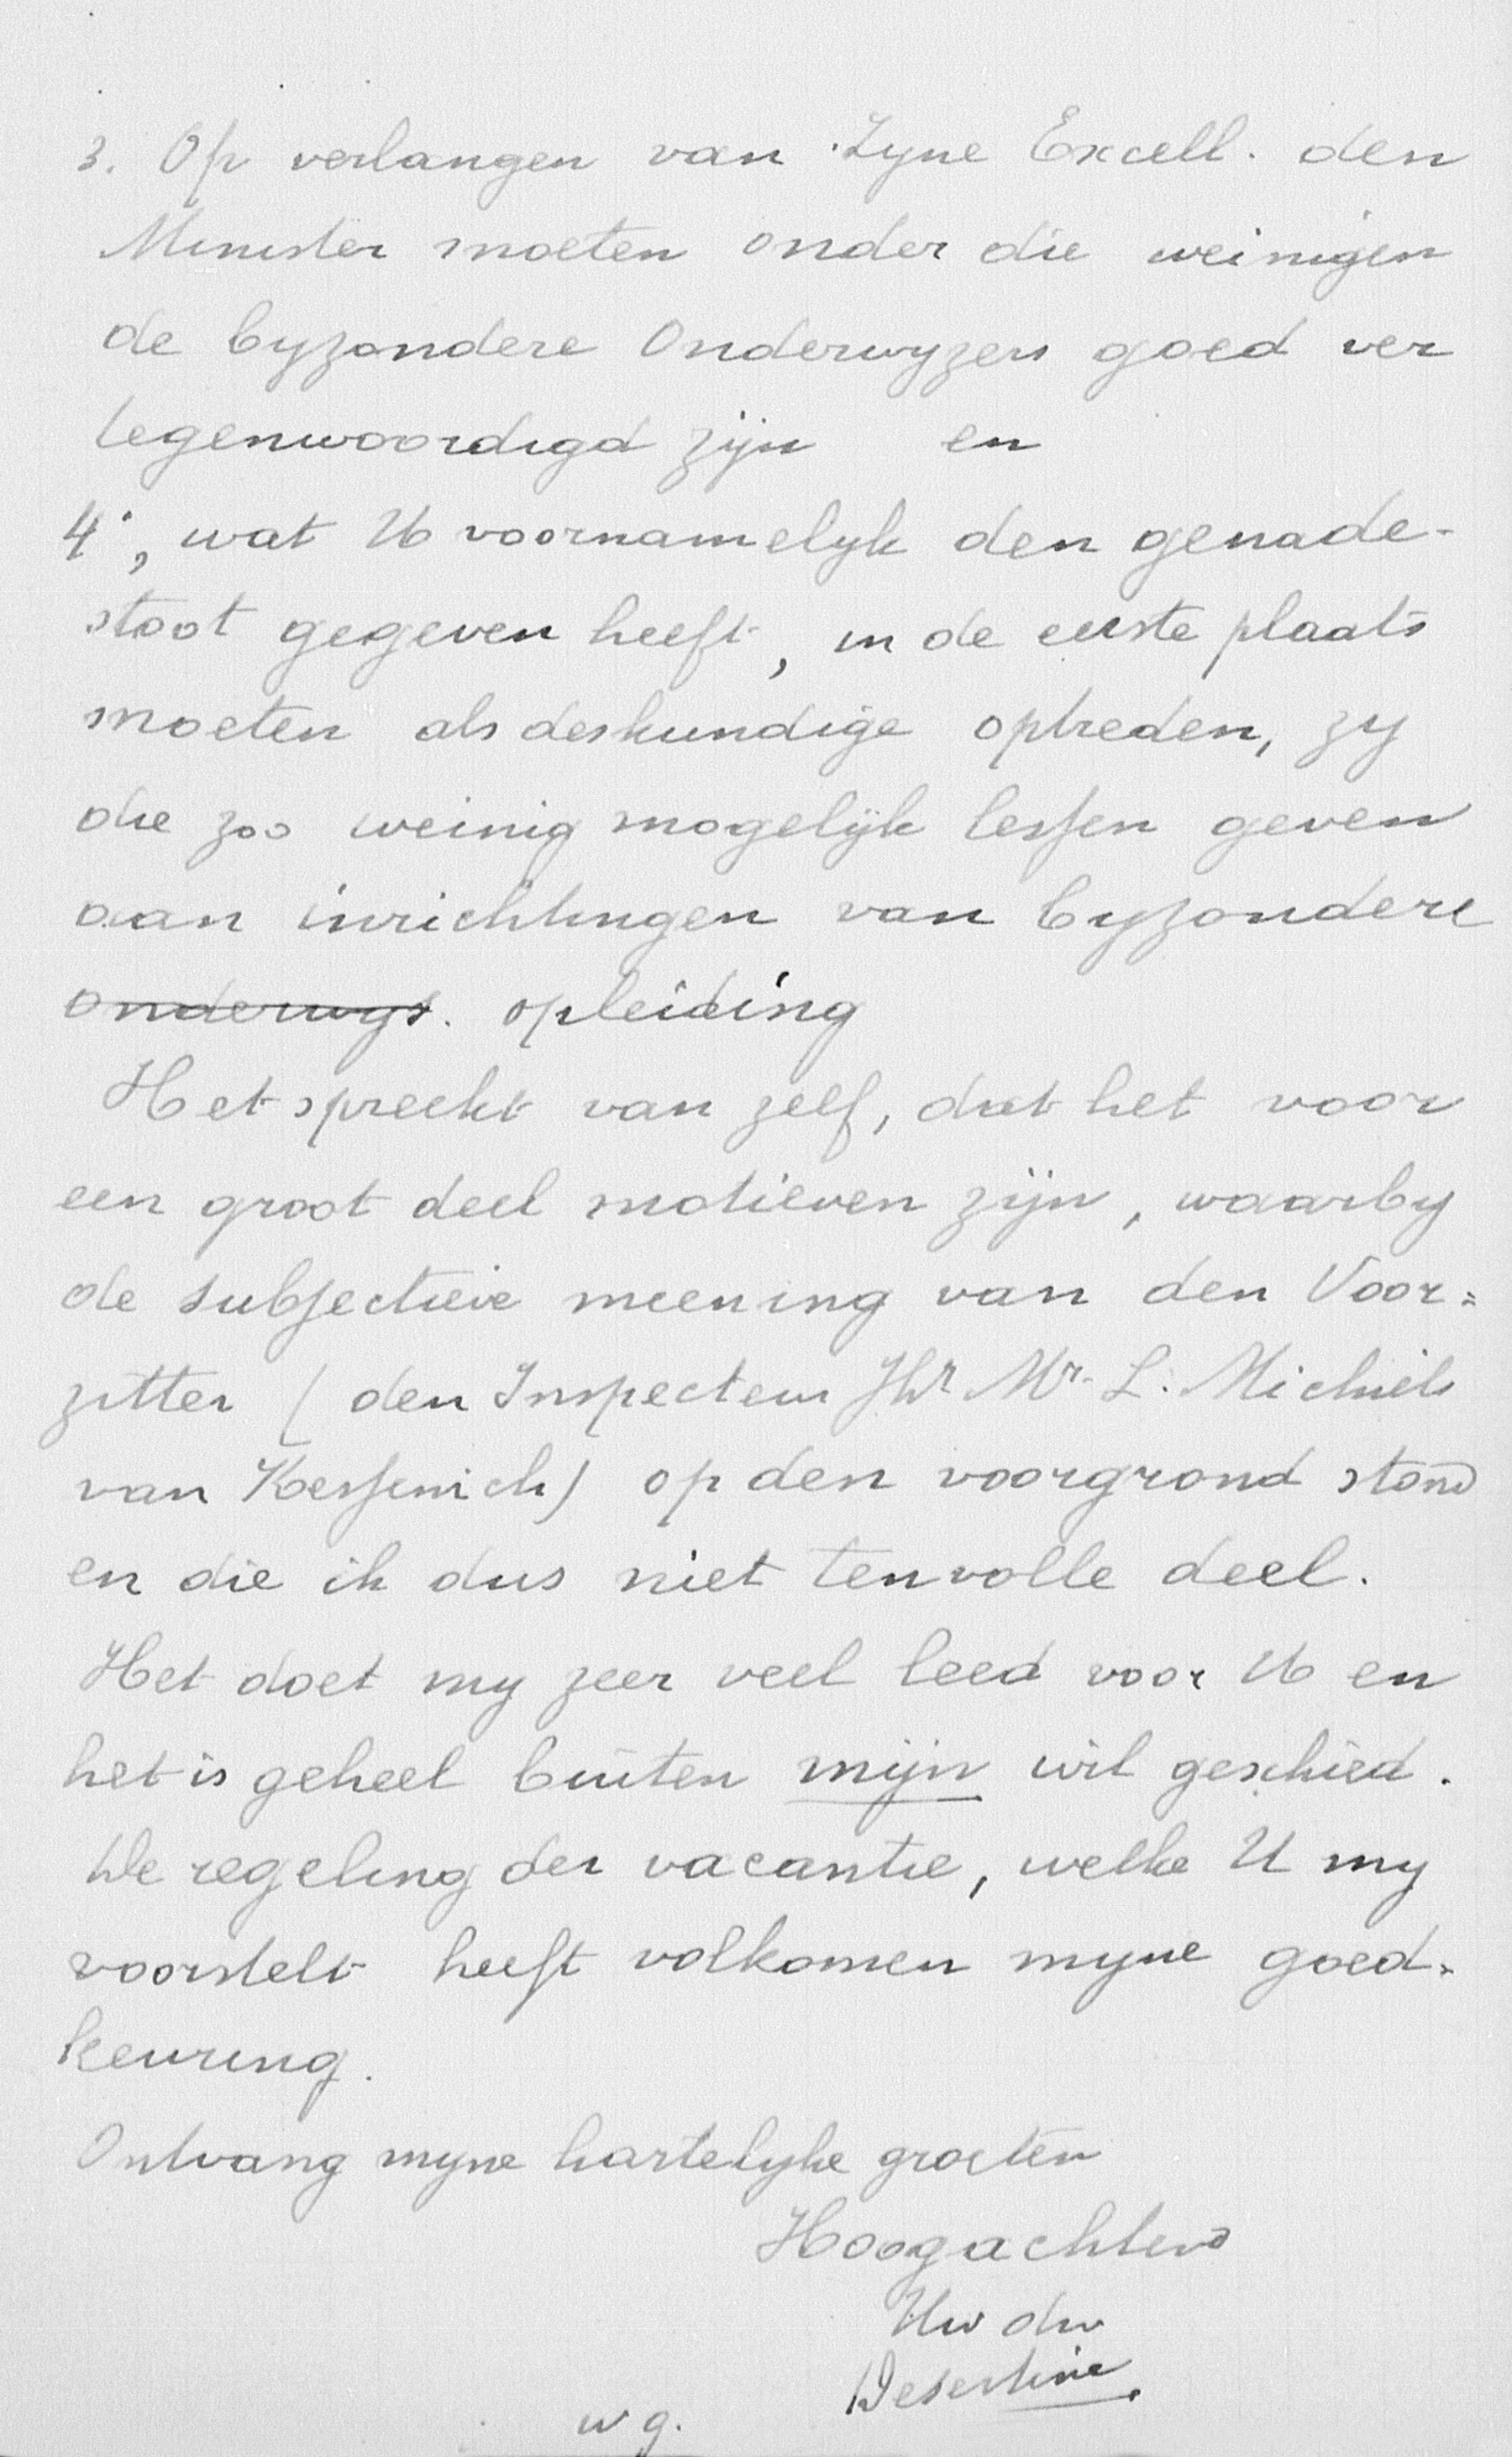 3. Op verlangen van Zyne Excell. den
Minister moeten onder die weinigen
de byzondere Onderwyzers goed ver
tegenwoordigd zijn en
4°, wat U voornamelyk den genade-
stoot gegeven heeft, in de eerste plaats
moeten als deskundige optreden, zy
die zoo weinig mogelijk lessen geven
aan inrichtingen van byzondere
onderwys. opleiding
Het spreekt van zelf, dat het voor
een groot deel motieven zijn, waarby
de subjectieve meening van den Voor=
zitter (den Inspecteur Jhr Mr. L. Michiels
van Kessenich) op den voorgrond stond
en die ik dus niet ten volle deel.
Het doet my zeer veel leed voor U en
het is geheel buiten mijn wil geschied.
De regeling der vacantie, welke U my
voorstelt heeft volkomen myne goed-
keuring.
Ontvang myne hartelyke groeten
Hoogachtend
Uw dw
wg.